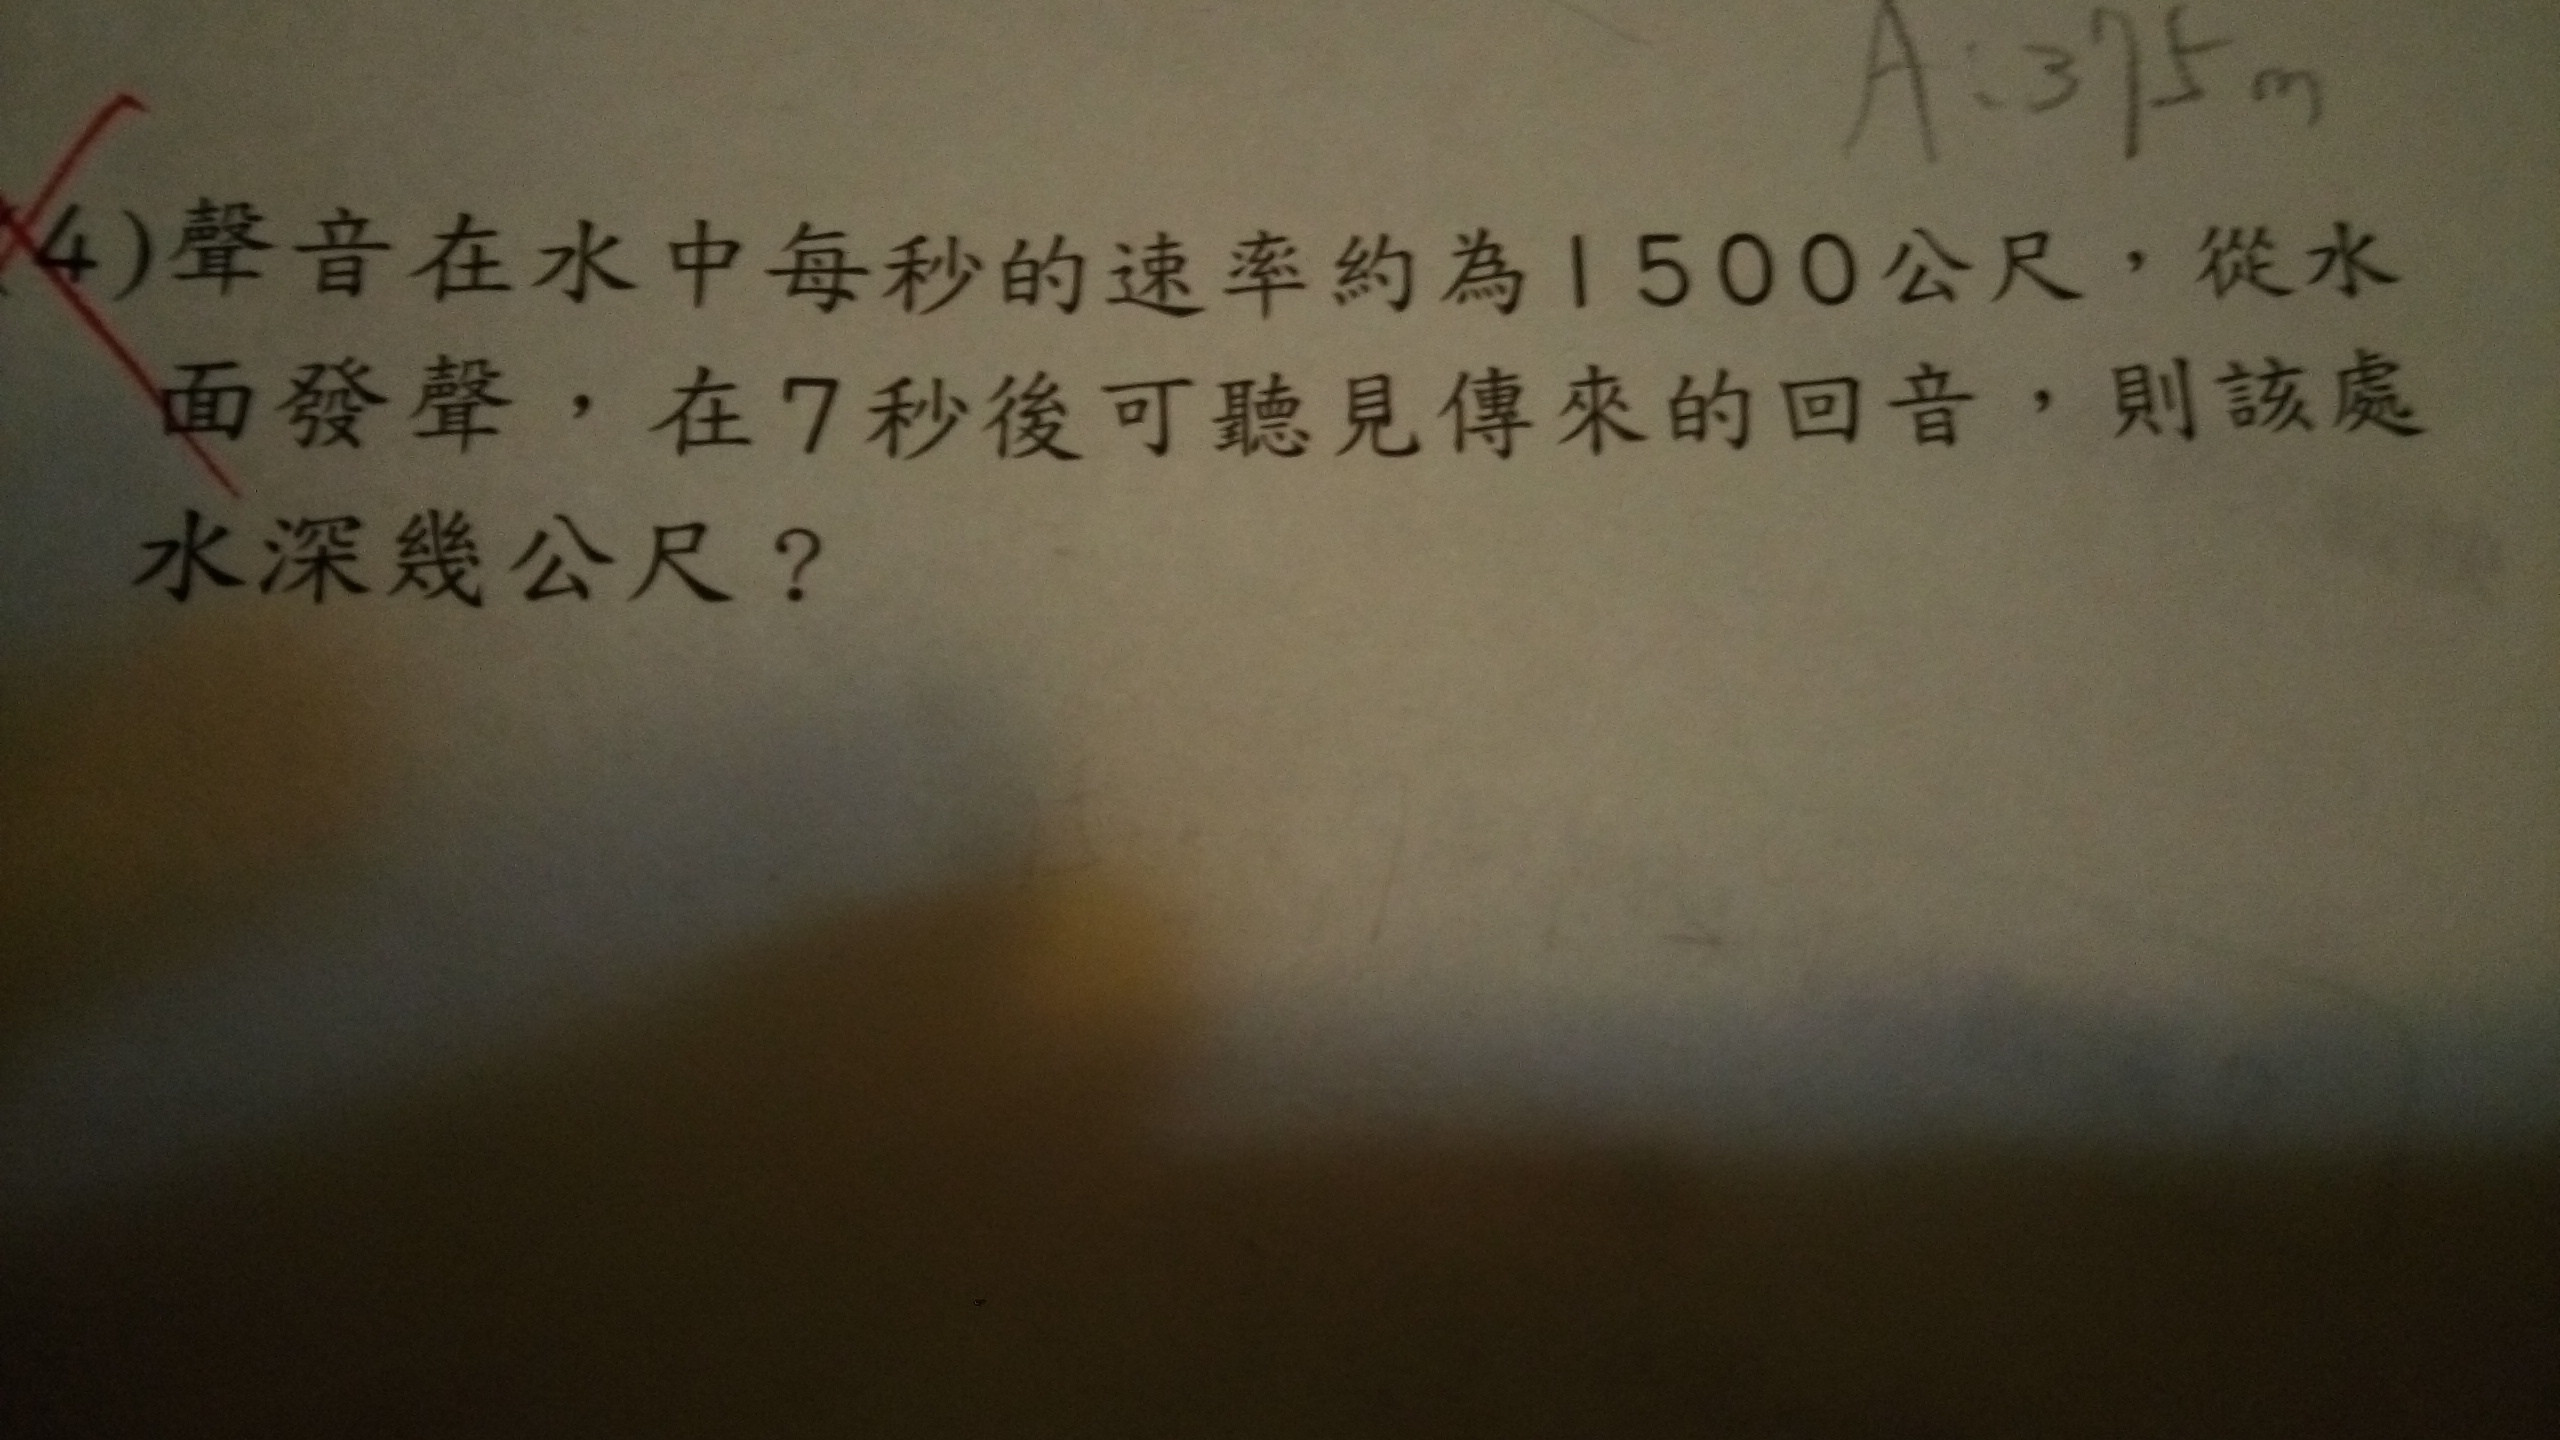 A:375m
(4)聲音在水中每秒的速率約為1500公尺，從水
面發聲，在7秒後可聽見傳來的回音，則該處
水深幾公尺？